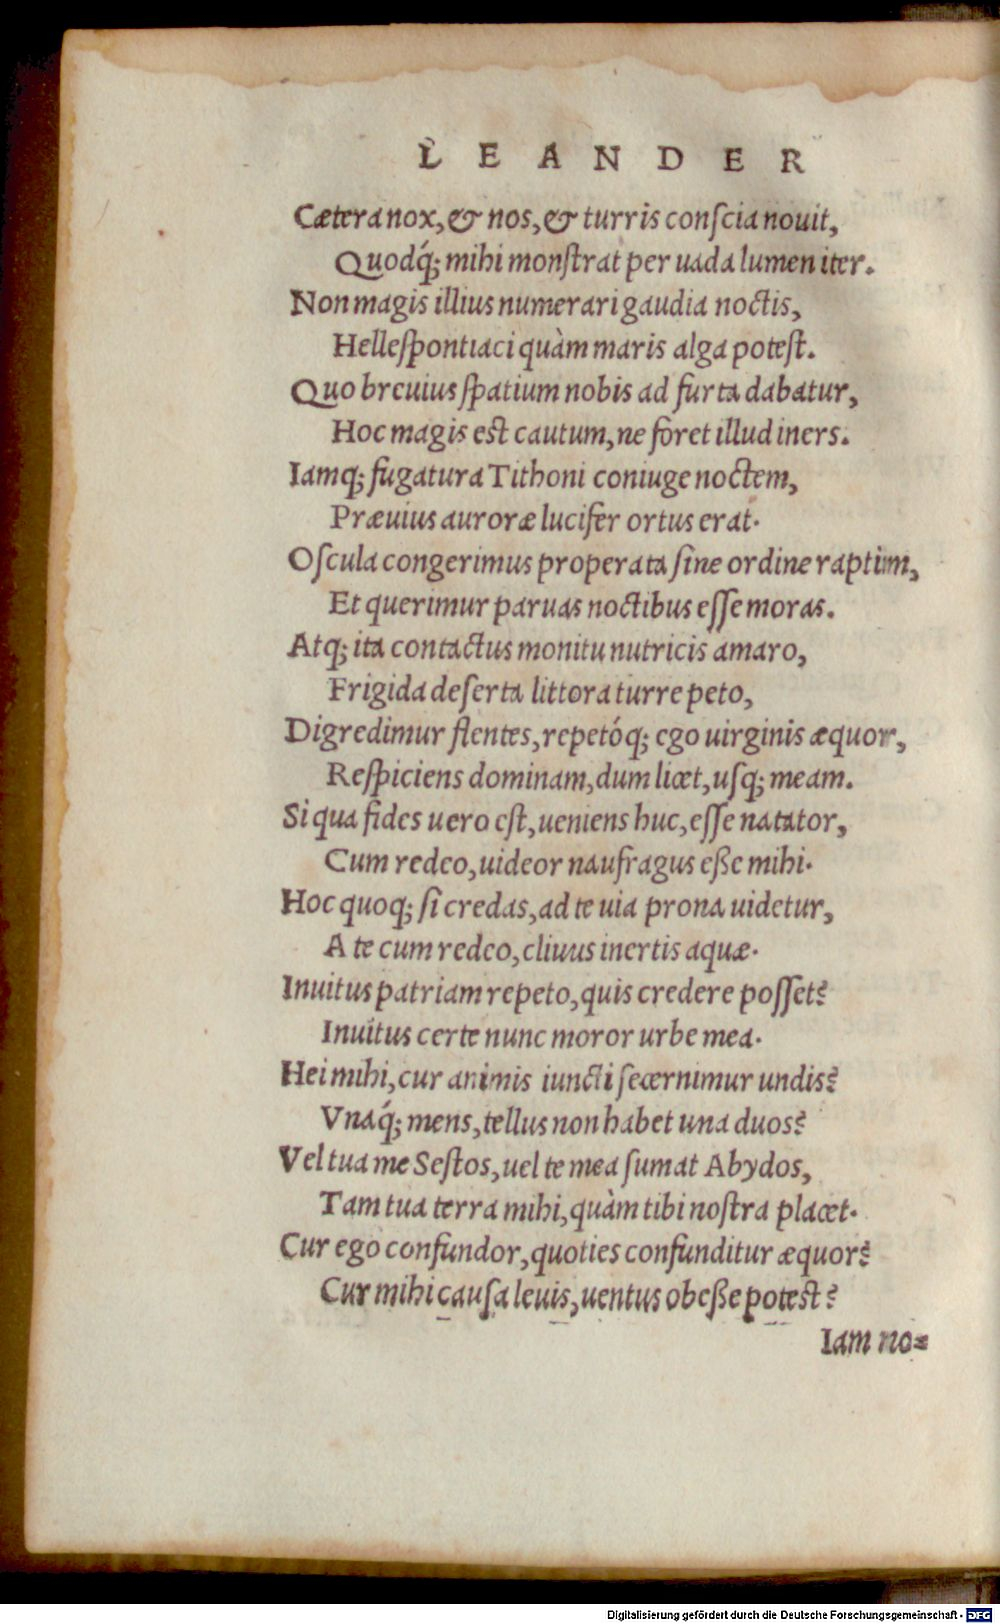 LEANDER
Cætera nox, & nos, & turris conscia nouit,
Quodq́; mihi monstrat per uada lumen iter.
Non magis illius numerari gaudia noctis,
Hellespontiaci quàm maris alga potest.
Quo breuius spatium nobis ad furta dabatur,
Hoc magis est cautum, ne foret illud iners.
Iamq; fugatura Tithoni coniuge noctem,
Præuius auroræ lucifer ortus erat.
Oscula congerimus properata sine ordine raptim,
Et querimur paruas noctibus esse moras.
Atq; ita contactus monitu nutricis amaro,
Frigida deserta littora turre peto,
Digredimur flentes, repetóq; ego uirginis æquor,
Respiciens dominam, dum licet, usq; meam.
Si qua fides uero est, ueniens huc, esse natator,
Cum redeo, uideor naufragus eße mihi.
Hoc quoq; si credas, ad te uia prona uidetur,
A te cum redeo, cliuus inertis aquæ.
Inuitus patriam repeto, quis credere posset?
Inuitus certe nunc moror urbe mea.
Hei mihi, cur animis iuncti secernimur undis?
Vnaq́; mens, tellus non habet una duos?
Vel tua me Sestos, uel te mea sumat Abydos,
Tam tua terra mihi, quàm tibi nostra placet.
Cur ego confundor, quoties confunditur æquor?
Cur mihi causa leuis, uentus obeße potest?
Iam no=
Digitalisierung gefördert durch die Deutsche Forschungsgemeinschaft - DFG